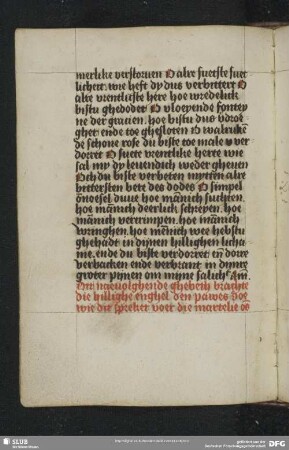 merlike verstorven O alre suetste suet
licheit. wie heft dy dus verbittert O
alre vrentlicste here hoe wredelick
bistu ghedodet O vloyende fonteyn
ne der gracien. hoe bistu dus vdroe
ghet ende toe ghesloten O walruke
de schone rose du biste toe male vver
dorret O suete vrentlike herre wie
sal my dy levendich weder gheuen
Och du biste verbeten mytten alre
bittersten bete des dodes O simpel
onnosel duue hoe mānich suchten.
hoe mānich deerlick schreyen. hoe
mānich vetcrimpen. hoe mānich
wringhen. hoe mēnich wee hebstu
ghehadt in dynen hillighen licha
me. ende du biste verdorret. en dorre
verbacken ende verbrant in dynre
groter pynen om mijne salich' Am̄.
Dit naevolghende ghebeth brachte
die hillighe enghel den pawes Bo
wie dit spreket voer die martelie
SLUB
DFG